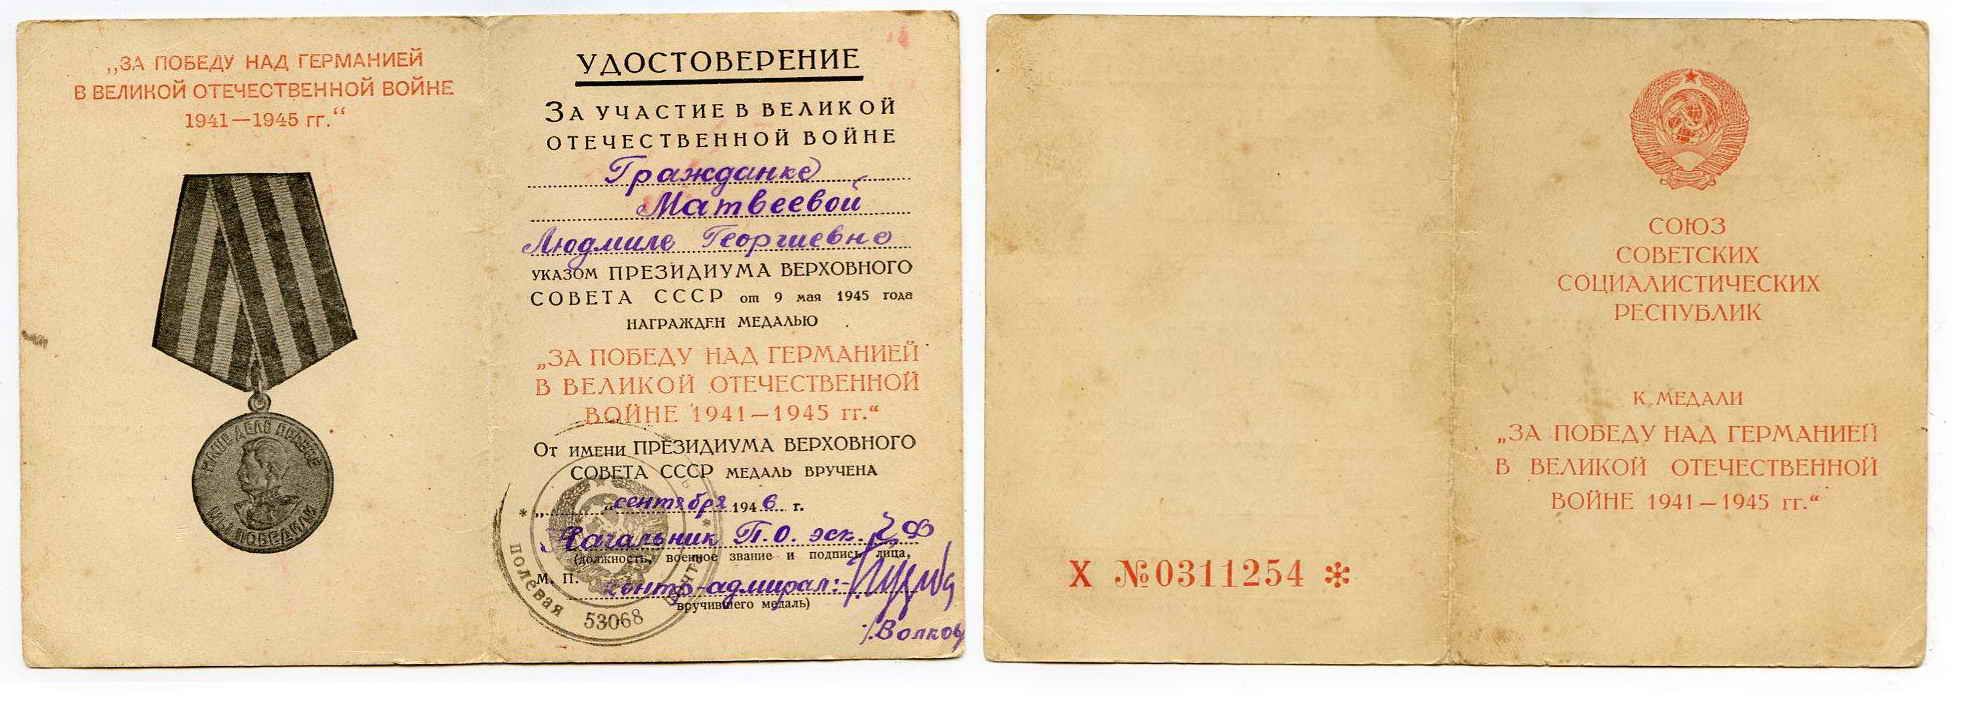 „ЗА ПОБЕДУ НАД ГЕРМАНИЕЙ
В ВЕЛИКОЙ ОТЕЧЕСТВЕННОЙ ВОЙНЕ
1941—1945 гг.“
НАШЕ ДЕЛО ПРАВОЕ
МЫ ПОБЕДИЛИ
УДОСТОВЕРЕНИЕ
ЗА УЧАСТИЕ В ВЕЛИКОЙ
ОТЕЧЕСТВЕННОЙ ВОЙНЕ
Гражданке
Матвеевой
Людмиле Георгиевне
УКАЗОМ ПРЕЗИДИУМА ВЕРХОВНОГО
СОВЕТА СССР от 9 мая 1945 года
НАГРАЖДЕН МЕДАЛЬЮ
„ЗА ПОБЕДУ НАД ГЕРМАНИЕЙ
В ВЕЛИКОЙ ОТЕЧЕСТВЕННОЙ
ВОЙНЕ 1941—1945 гг.“
ОТ ИМЕНИ ПРЕЗИДИУМА ВЕРХОВНОГО
СОВЕТА СССР МЕДАЛЬ ВРУЧЕНА
„ “ сентября 1946 г.
Начальник П.О. эск.
(должность, военное звание и подпись лица,
М. П. контр-адмирал:-
вручившего медаль)
/.Волков
полевая почта
53068
СОЮЗ
СОВЕТСКИХ
СОЦИАЛИСТИЧЕСКИХ
РЕСПУБЛИК
К МЕДАЛИ
„ЗА ПОБЕДУ НАД ГЕРМАНИЕЙ
В ВЕЛИКОЙ ОТЕЧЕСТВЕННОЙ
ВОЙНЕ 1941—1945 гг.“
Х №0311254 *